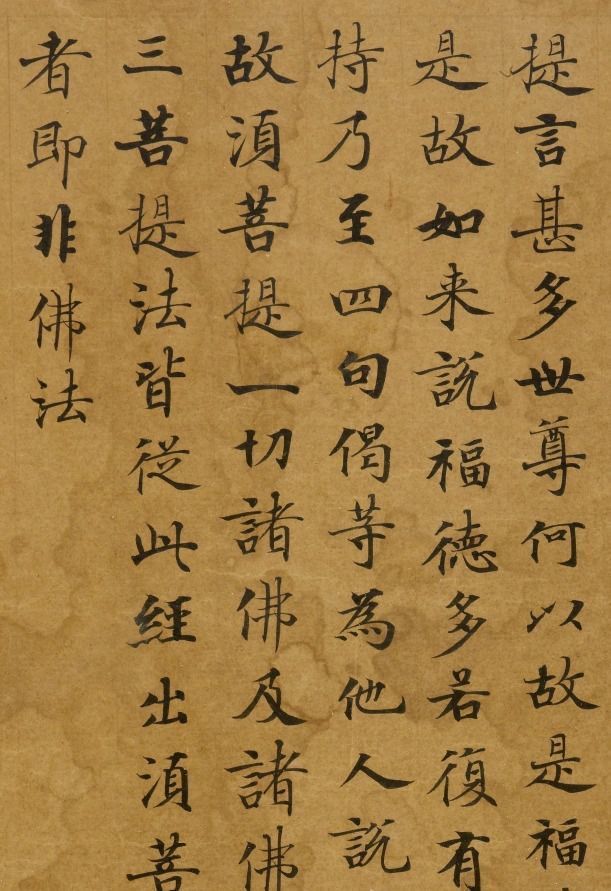 提言甚多世尊何以故是福
是故如来説福德多若復有
持乃至四句偈等為他人説
故湏菩提一切諸佛及諸佛
三菩提法皆從此經出湏菩
者即非佛法